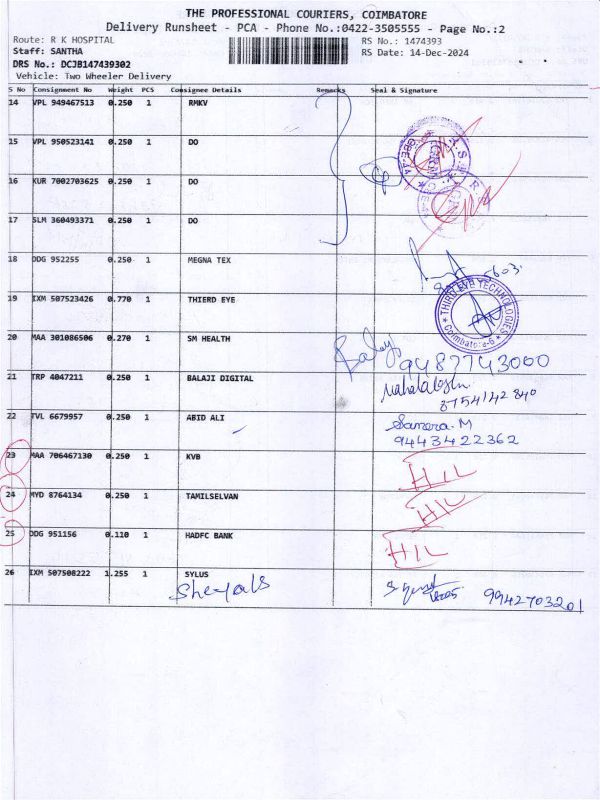 THE PROFESSIONAL COURIERS, COIMBATORE
Delivery Runsheet - PCA - Phone No.:0422-3505555 - Page No.:2
Route: R K HOSPITAL RS No.: 1474393
Staff: SANTHA RS Date: 14-Dec-2024
DRS No.: DCJB147439302
Vehicle: Two Wheeler Delivery
S No Consignment No Weight PCS Consignee Details Remarks Seal & Signature
14 VPL 949467513 0.250 1 RMKV
15 VPL 950523141 0.250 1 DO
16 KUR 7002703625 0.250 1 DO
17 SLM 360493371 0.250 1 DO
18 DDG 952255 0.250 1 MEGNA TEX
19 IXM 507523426 0.770 1 THIERD EYE
THIRD EYE TECHNOLOGIES
Coimbatore-6
20 MAA 301086506 0.270 1 SM HEALTH
Balaji 9487743000
21 TRP 4047211 0.250 1 BALAJI DIGITAL
8754142840
22 TVL 6679957 0.250 1 ABID ALI
Sameera. M
9443422362
23 MAA 706467130 0.250 1 KVB HIL
24 MYD 8764134 0.250 1 TAMILSELVAN HIL
25 DDG 951156 0.110 1 HADFC BANK HIL
26 IXM 507508222 1.255 1 SYLUS
9942703201